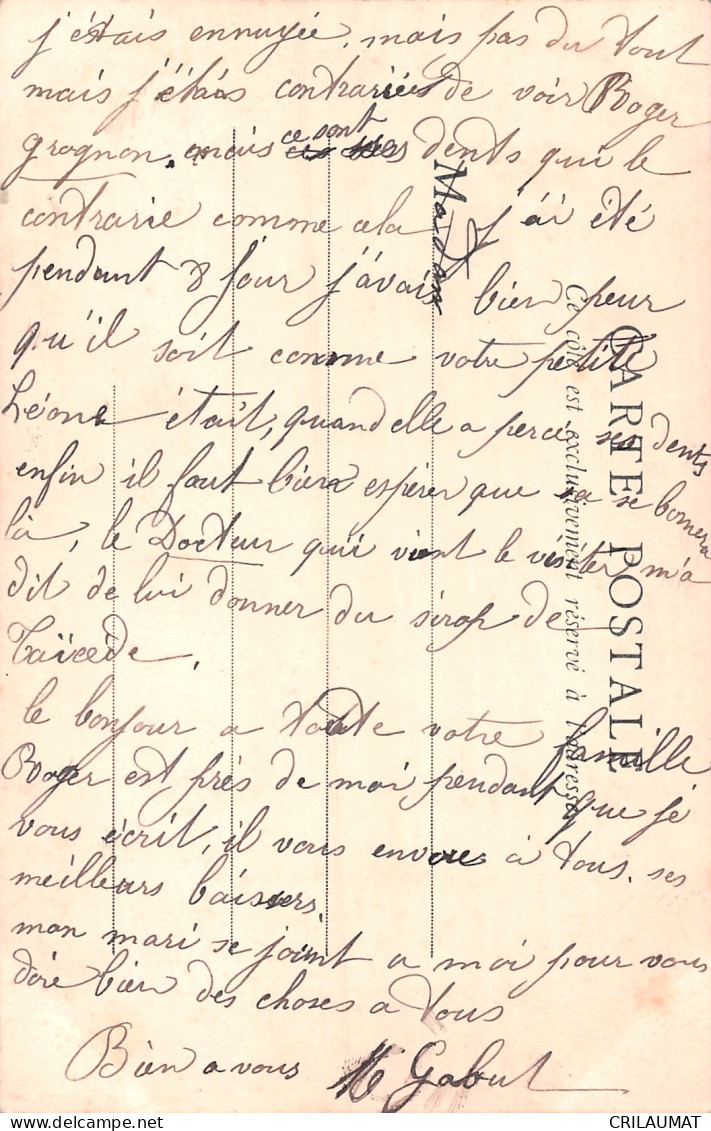 j'étais ennuyée, mais pas du tout
mais j'étais contrariées de voir Roger
grognon. mais ce sont ses dents qui le
contrarie comme cela j'ai été
pendant 8 jour j'avais bien peur
qu'il soit comme votre petite
Léone était, quand elle a percé ses dents
enfin il faut bien espérer que sa se bornera
là, le Docteur qui vient le visiter m'a
dit de lui donner du sirop de
le bonjour a toute votre famille
Roger est près de moi pendant que je
vous écrit, il vous envoie à tous ses
meilleurs baisers.
mon mari se joint a moi pour vous
dire bien des choses a tous
Bien a vous M Gabut
CARTE POSTALE
Ce côté est exclusivement réservé à l'adresse
CRILAUMAT